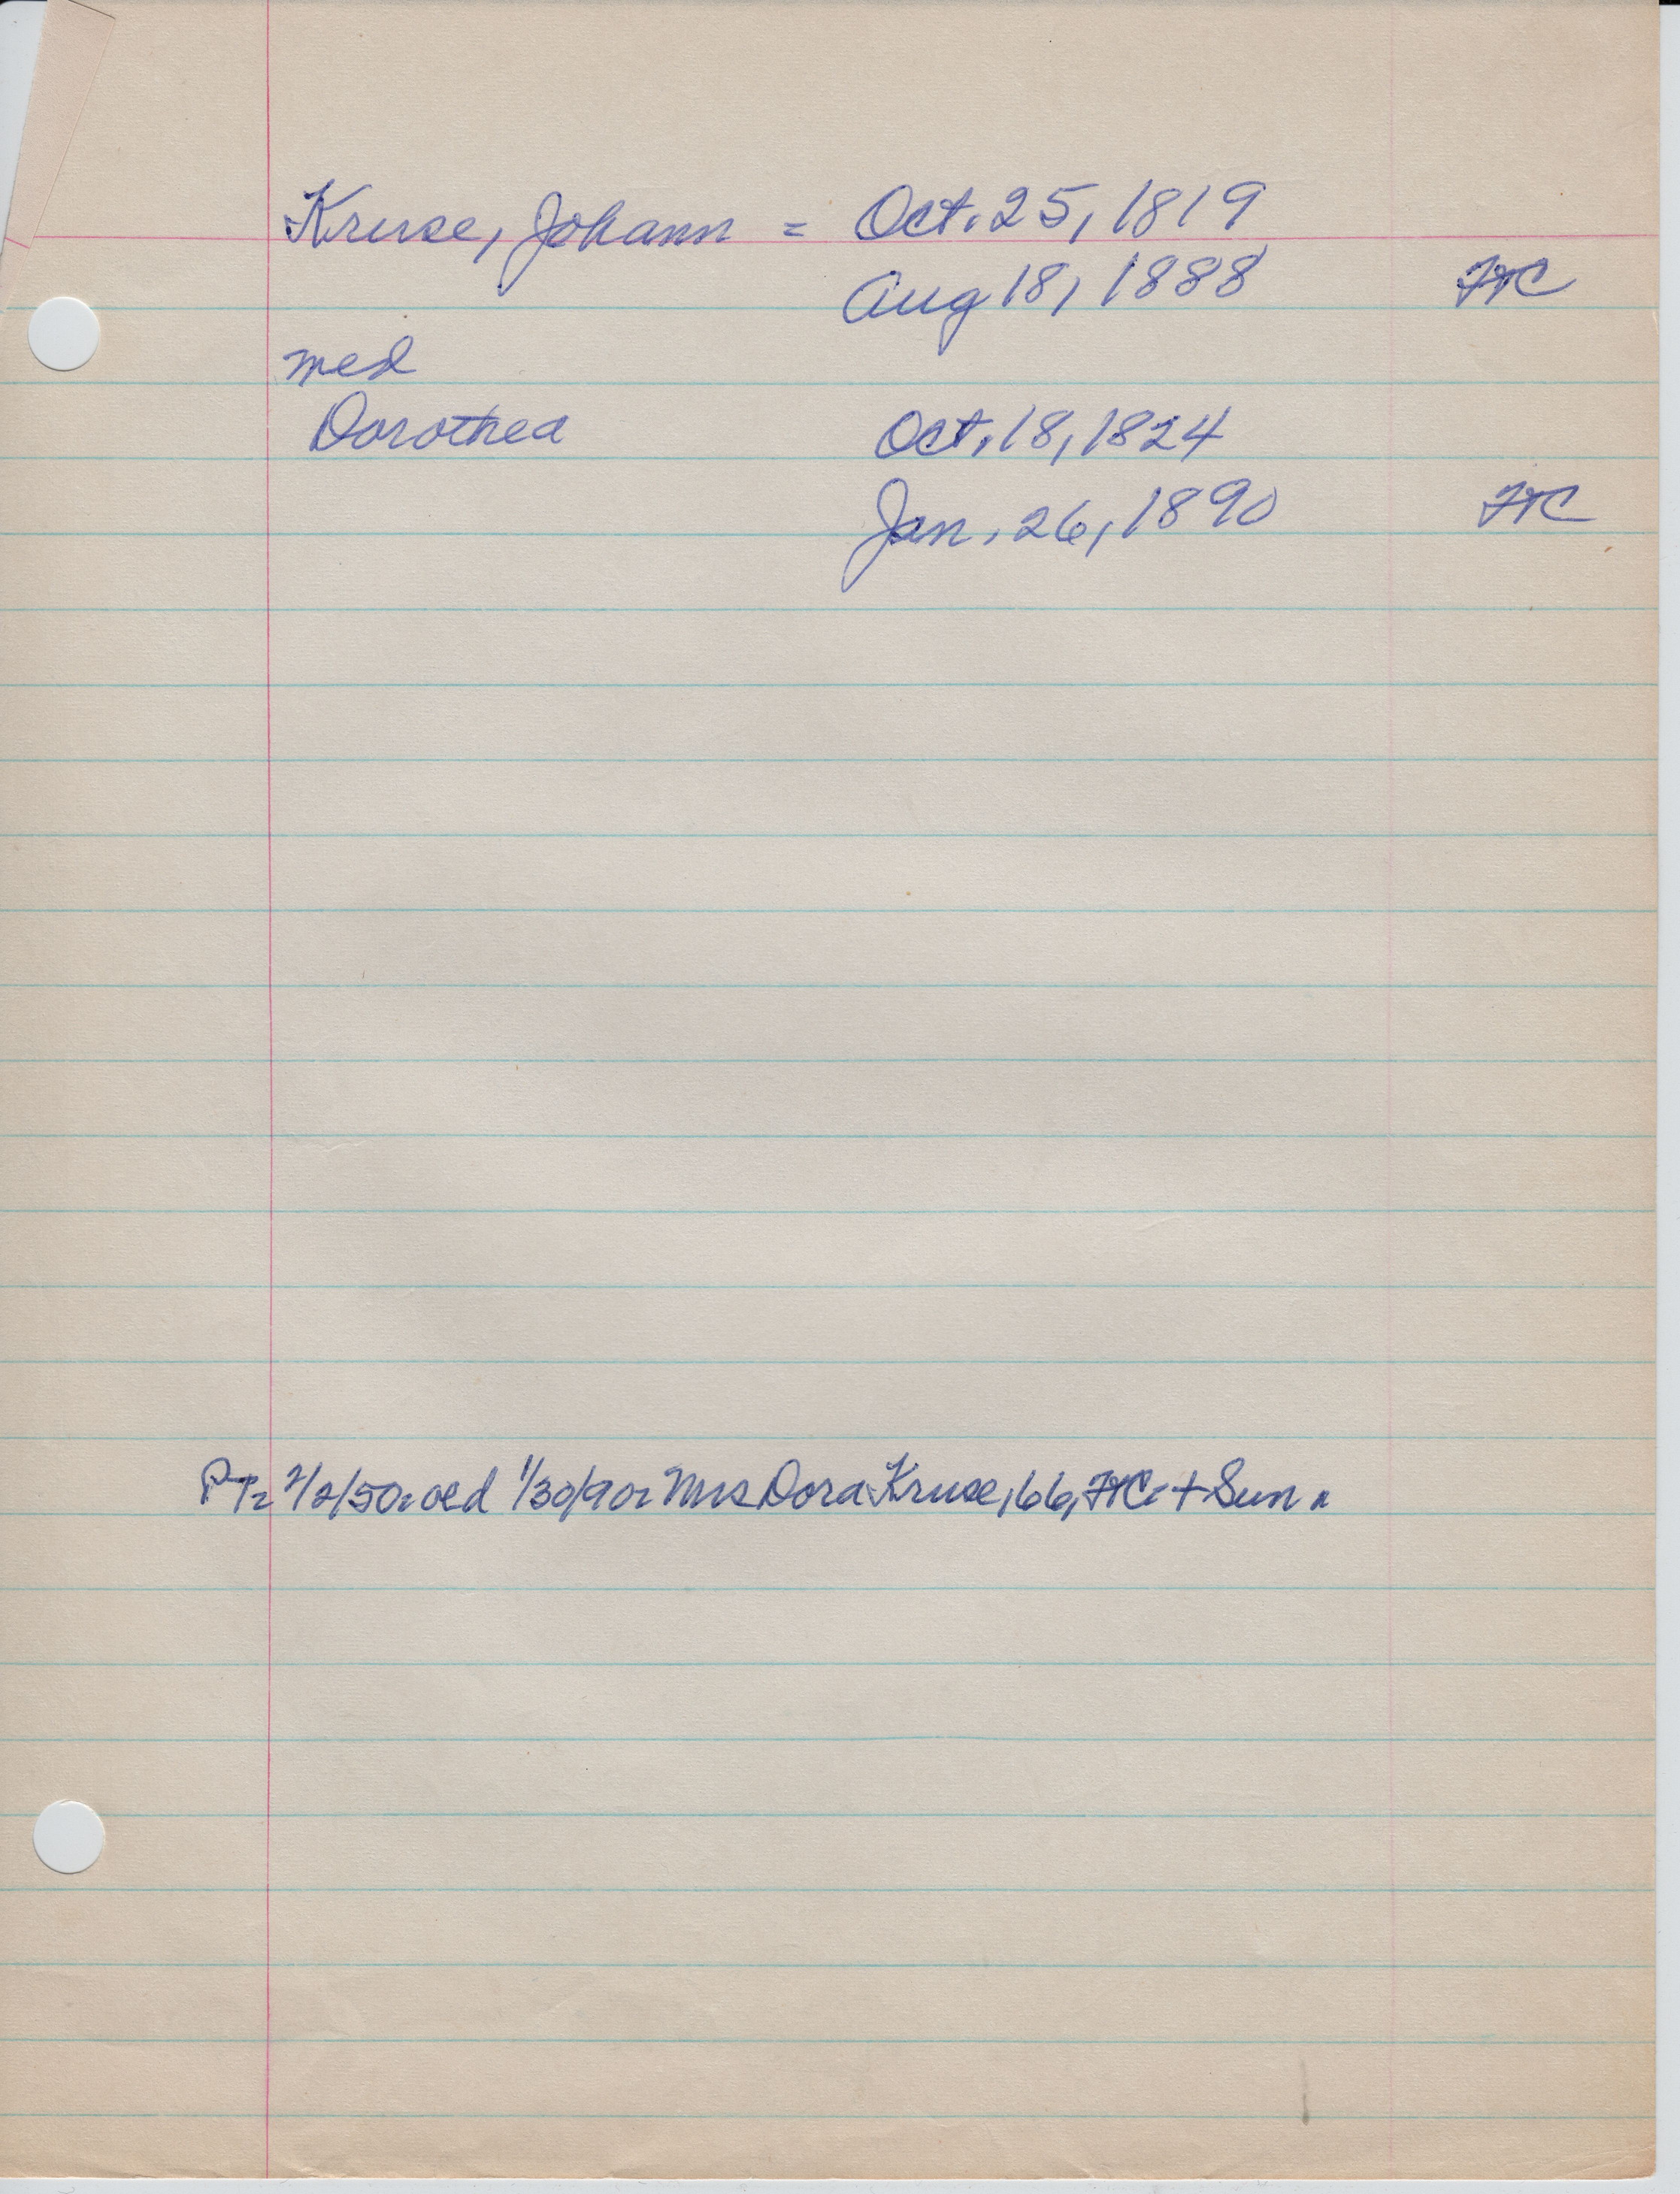 Kruse, Johann = Oct. 25, 1819
Aug 18, 1888 FTC
med
Dorothea Oct. 18, 1824
Jan. 26, 1890 FTC
PT= 2/2/50= oed 1/30/90= Mrs Dora Kruse, 66, FTC= + Sun.